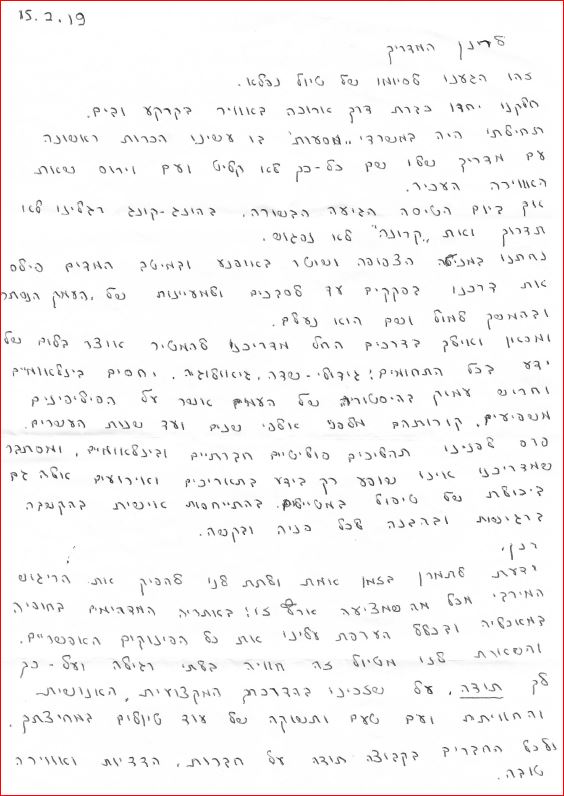 15.2.19
לרונן המדריך
זהו הגענו לסיומו של טיול נפלא.
חלקנו יחדו כברת דרך ארוכה באוויר בקרקע ובים.
תחילתי היה במשרדי "מסעות" בו עשינו הכרות ראשונה
עם מדריך שלו שם כל-כך לא קליט ועם וירוס שאת
האווירה העכיר.
אך ביום הטיסה הגיעה הבשורה. בהונג-קונג רגלינו לא
תדרוך ואת "קרונה" לא נפגוש.
נחתנו במנילה הצפופה ושוטר באופנוע ובמיטב המדים פילס
את דרכנו בפקקים עד לסבכים ולמעיינות של העמק הנסתר
ובהמשך שמול ושם הוא נעלם.
ומכאן ואילך בדרכים החל מדריכנו להמטיר אוצר בלום של
ידע בכל התחומים: גידולי-שדה, גיאולוגיה, יחסים בינלאומיים
וחריש עמוק בהיסטוריה של העמים אשר על הפיליפינים
משפיעים, קורותהם מלפני אלפי שנים ועד שנות העשרים.
פרס לפנינו תהליכים פוליטיים חברתיים ובינלאומיים, ומסתבר
שמדריכנו אינו שופע רק בידע בתאריכים ואירועים אלא גם
ביכולת של טיפול במטיילים. בהתייחסות אישית בהקשבה
ברגישות ובהבנה לכל פניה ובקשה.
רונן,
ידעת לתמרן בזמן אמת ולתת לנו להפיק את הריגוש
המירבי מכל מה שמציעה ארץ זו: באתריה המדהימים בחופיה
במאכליה ובכלל הערפת עלינו את כל הפינוקים האפשריים.
והשארת לנו מטיול זה חוויה בלתי רגילה ועל-כך
לך תודה, על שזכינו בהדרכתך המקצועית, האנושית
והחוויתית ועם טעם ותשוקה של עוד טיולים במחיצתך.
ולכל החברים בקבוצה תודה על חברות, הדדיות ואווירה
טובה.